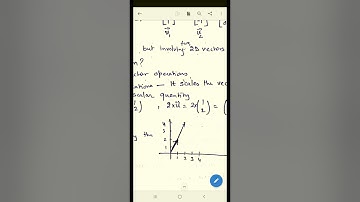 [1] [-1]
v₁ v₂
two
but involving 2D vectors
n?
ector operations
ations — It scales the vec
scalar quantity
2), 2xū = 2x(1 2) = (
g the
4
3
2
1
1 2 3 4